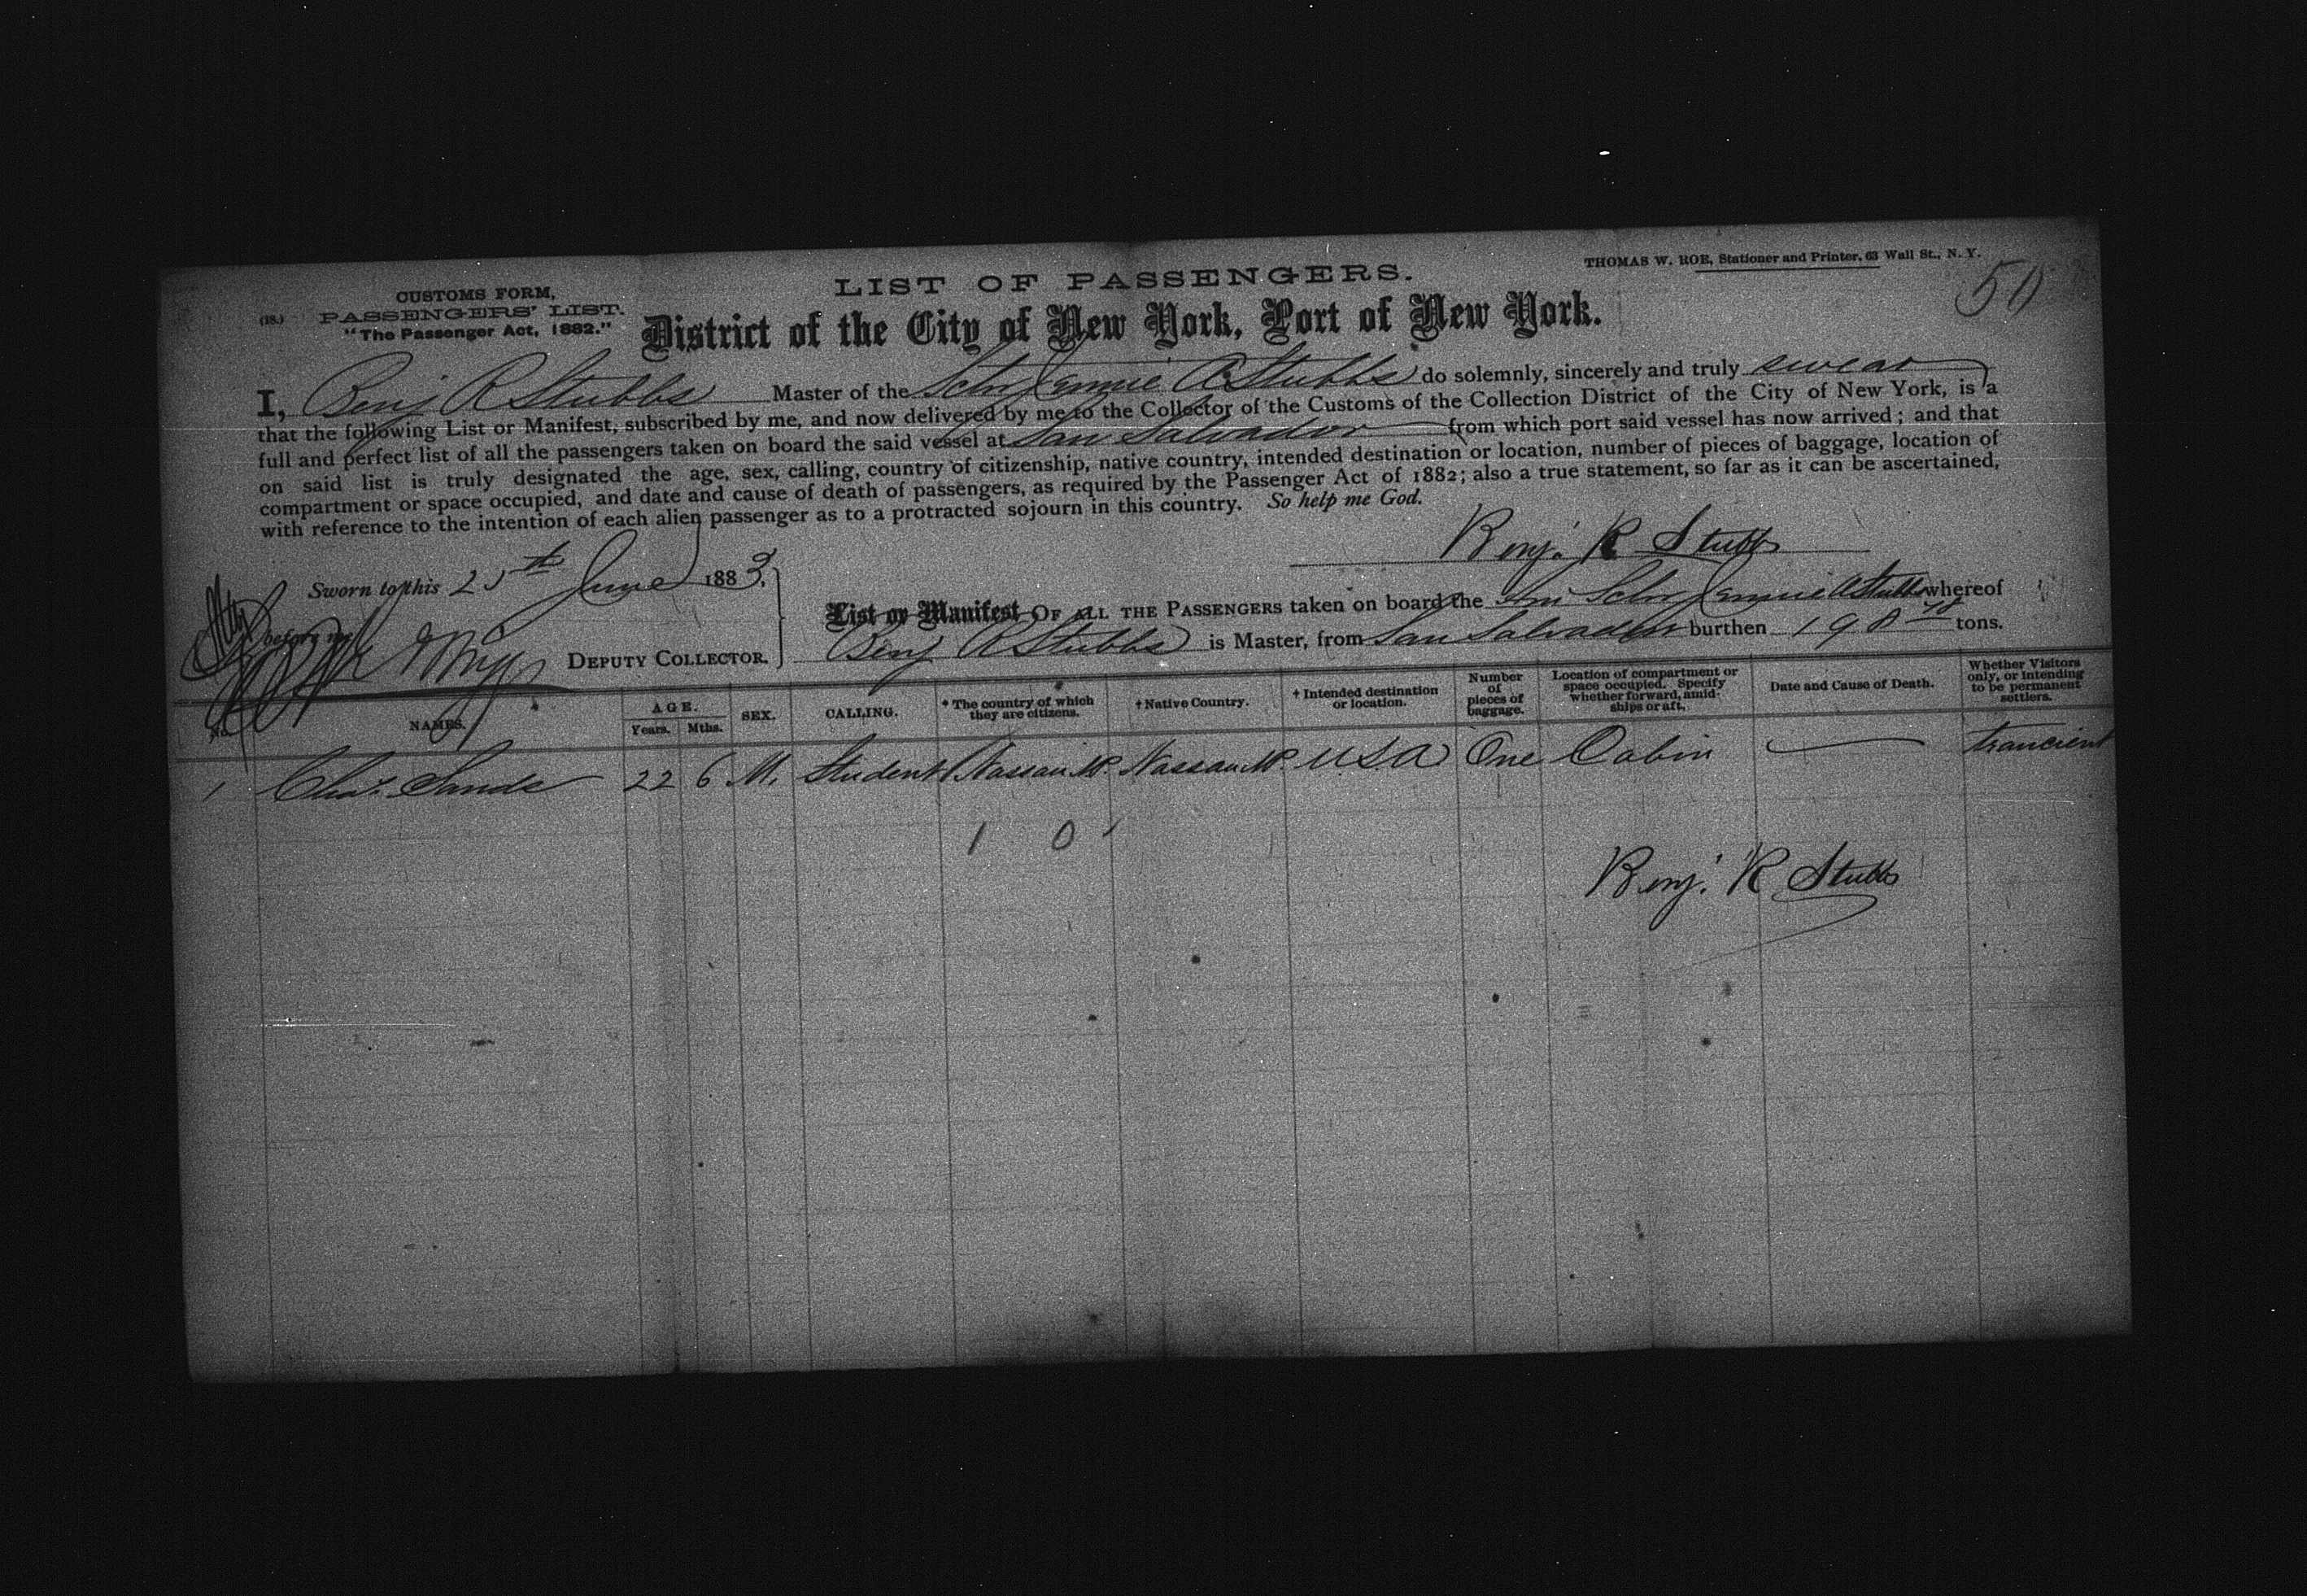 THOMAS W. ROE, Stationer and Printer, 63 Wall St., N. Y.
50
CUSTOMS FORM,
(18.) PASSENGERS' LIST.
"The Passenger Act, 1882."
LIST OF PASSENGERS.
District of the City of New York, Port of New York.
I, Benj R Stubbs Master of the Schr Jennie A Stubbs do solemnly, sincerely and truly swear
that the following List or Manifest, subscribed by me, and now delivered by me to the Collector of the Customs of the Collection District of the City of New York, is a
full and perfect list of all the passengers taken on board the said vessel at San Salvador from which port said vessel has now arrived; and that
on said list is truly designated the age, sex, calling, country of citizenship, native country, intended destination or location, number of pieces of baggage, location of
compartment or space occupied, and date and cause of death of passengers, as required by the Passenger Act of 1882; also a true statement, so far as it can be ascertained,
with reference to the intention of each alien passenger as to a protracted sojourn in this country. So help me God.
Benj. R Stubbs
Sworn to this 25th June 1883,
before me
DEPUTY COLLECTOR.
List or Manifest OF ALL THE PASSENGERS taken on board the Am Schr Jennie A Stubbs whereof
Benj R Stubbs is Master, from San Salvador burthen 198 tons.
No. NAMES. AGE. Years. Mths. SEX. CALLING. * The country of which they are citizens. † Native Country. † Intended destination or location. Number of pieces of baggage. Location of compartment or space occupied. Specify whether forward, amidships or aft. Date and Cause of Death. Whether Visitors only, or intending to be permanent settlers.
1 Chas. Sands 22 6 M. Student Nassau N.P. Nassau N.P. U.S.A One Cabin trancient
1 0
Benj. R Stubbs